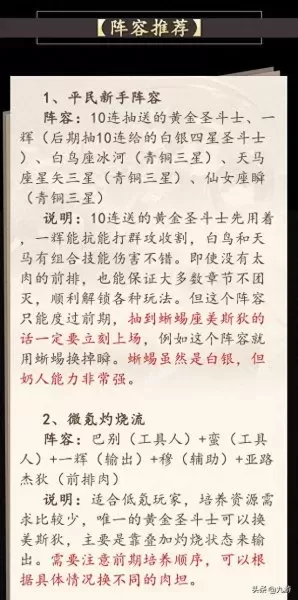 【阵容推荐】
1、平民新手阵容
阵容：10连抽送的黄金圣斗士、一
辉（后期抽10连给的白银四星圣斗士
）、白鸟座冰河（青铜三星）、天马
座星矢三星（青铜三星）、仙女座瞬
（青铜三星）
说明：10连送的黄金圣斗士先用着
，一辉能抗能打群攻收割，白鸟和天
马有组合技能伤害不错。即使没有太
肉的前排，也能保证大多数章节不团
灭，顺利解锁各种玩法。但这个阵容
只能度过前期，抽到蜥蜴座美斯狄的
话一定要立刻上场，例如这个阵容就
用蜥蜴换掉瞬。蜥蜴虽然是白银，但
奶人能力非常强。
2、微氪灼烧流
阵容：巴别（工具人）+蛮（工具
人）+一辉（输出）+穆（辅助）+亚路
杰狄（前排肉）
说明：适合低氪玩家，培养资源需
求比较少，唯一的黄金圣斗士可以换
美斯狄，主要是靠叠加灼烧状态来输
出。需要注意前期培养顺序，可以根
据具体情况换不同的肉坦。
头条 @九游